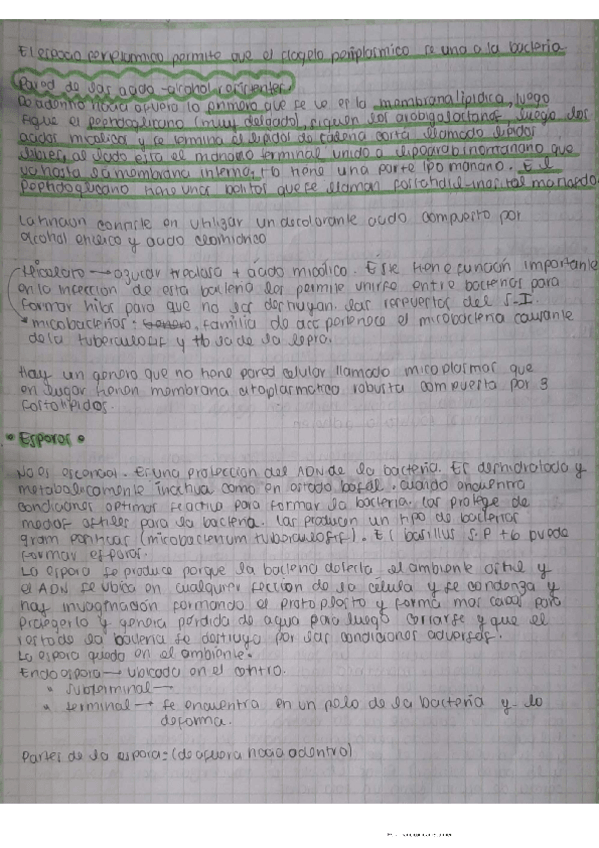 El espacio periplasmico permite que el flagelo periplasmico se una a la bacteria.
Pared de las acido-alcohol resistentes.
De adentro hacia afuera lo primero que se ve es la membrana lipidica, luego
sigue el peptidoglicano (muy delgado), siguen los arabogalactanos, luego los
acidos micolicos y se termina el lipidos de cadena corta llamado lipidos
libres, al lado esta el manano terminal unido a lipoarabinomanano que
va hasta la membrana interna, tb tiene una parte lipomanano. El
peptidoglicano tiene unas bolitas que se llaman fosfatidil-inositol manosido.
La tincion consiste en utilizar un decolorante acido compuesto por
alcohol etilico y acido clorhidrico
azucar trealosa + ácido micolico. Este tiene función importante
en la infección de esta bacteria les permite unirse entre bacterias para
formar hilos para que no las destruyan las respuestas del S.I.
* micobacterias: familia de acc pertenece el micobacteria causante
de la tuberculosis y tb la de la lepra.
Hay un genero que no tiene pared celular llamado micoplasmas que
en lugar tienen membrana citoplasmatica robusta compuesta por 3
fosfolipidos.
• Esporas •
No es esencial. Es una protección del ADN de la bacteria. Es deshidratada y
metabolicamente inactiva como en estado basal. Cuando encuentra
condiciones optimas reactiva para formar la bacteria. Las protege de
medios hostiles para la bacteria. Las producen un tipo de bacterias
gram positivas (micobacterium tuberculosis). El basillus S.P tb puede
formar esporas.
La espora se produce porque la bacteria detecta el ambiente ostil y
el ADN se ubica en cualquier seccion de la celula y se condensa y
hay invaginación formando el protoplasto y forma mas capas para
protegerlo y genera pérdida de agua para luego cerrarse y que el
resto de la bacteria se destruya por las condiciones adversas.
La espora queda en el ambiente.
Endoespora → ubicada en el centro.
" subterminal →
" terminal → se encuentra en un polo de la bacteria y lo
deforma.
Partes de la espora: (de afuera hacia adentro)